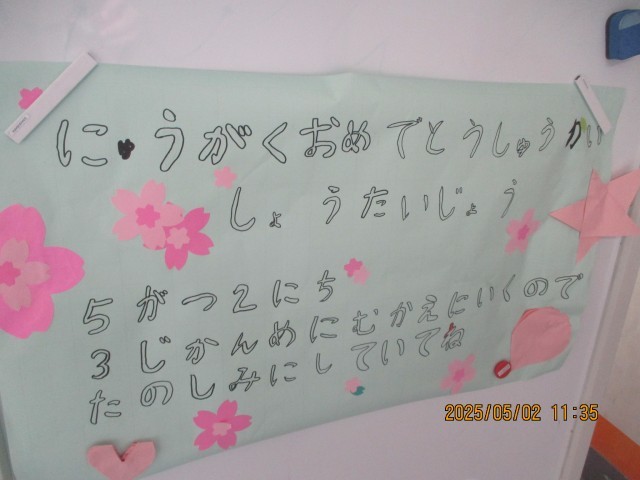 にゅうがくおめでとうしゅうかい
しょうたいじょう
5がつ2にち
3じかんめにむかえにいくので
たのしみにしていてね
2025/05/02 11:35